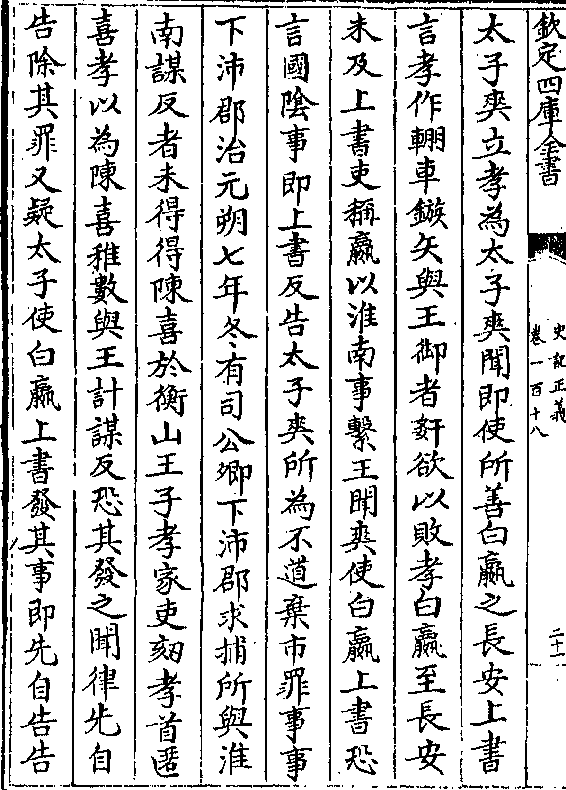 欽定四庫全書
史記正義
卷一百十八
二十一
太子爽立孝為太子爽聞即使所善白嬴之長安上書
言孝作輣車鏃矢與王御者姧欲以敗孝白嬴至長安
未及上書吏捕嬴以淮南事繫王聞爽使白嬴上書恐
言國隂事即上書反告太子爽所為不道棄市罪事事
下沛郡治元朔七年冬有司公卿下沛郡求捕所與淮
南謀反者未得得陳喜於衡山王子孝家吏劾孝首匿
喜孝以為陳喜雅數與王計謀反恐其發之聞律先自
告除其罪又疑太子使白嬴上書發其事即先自告告